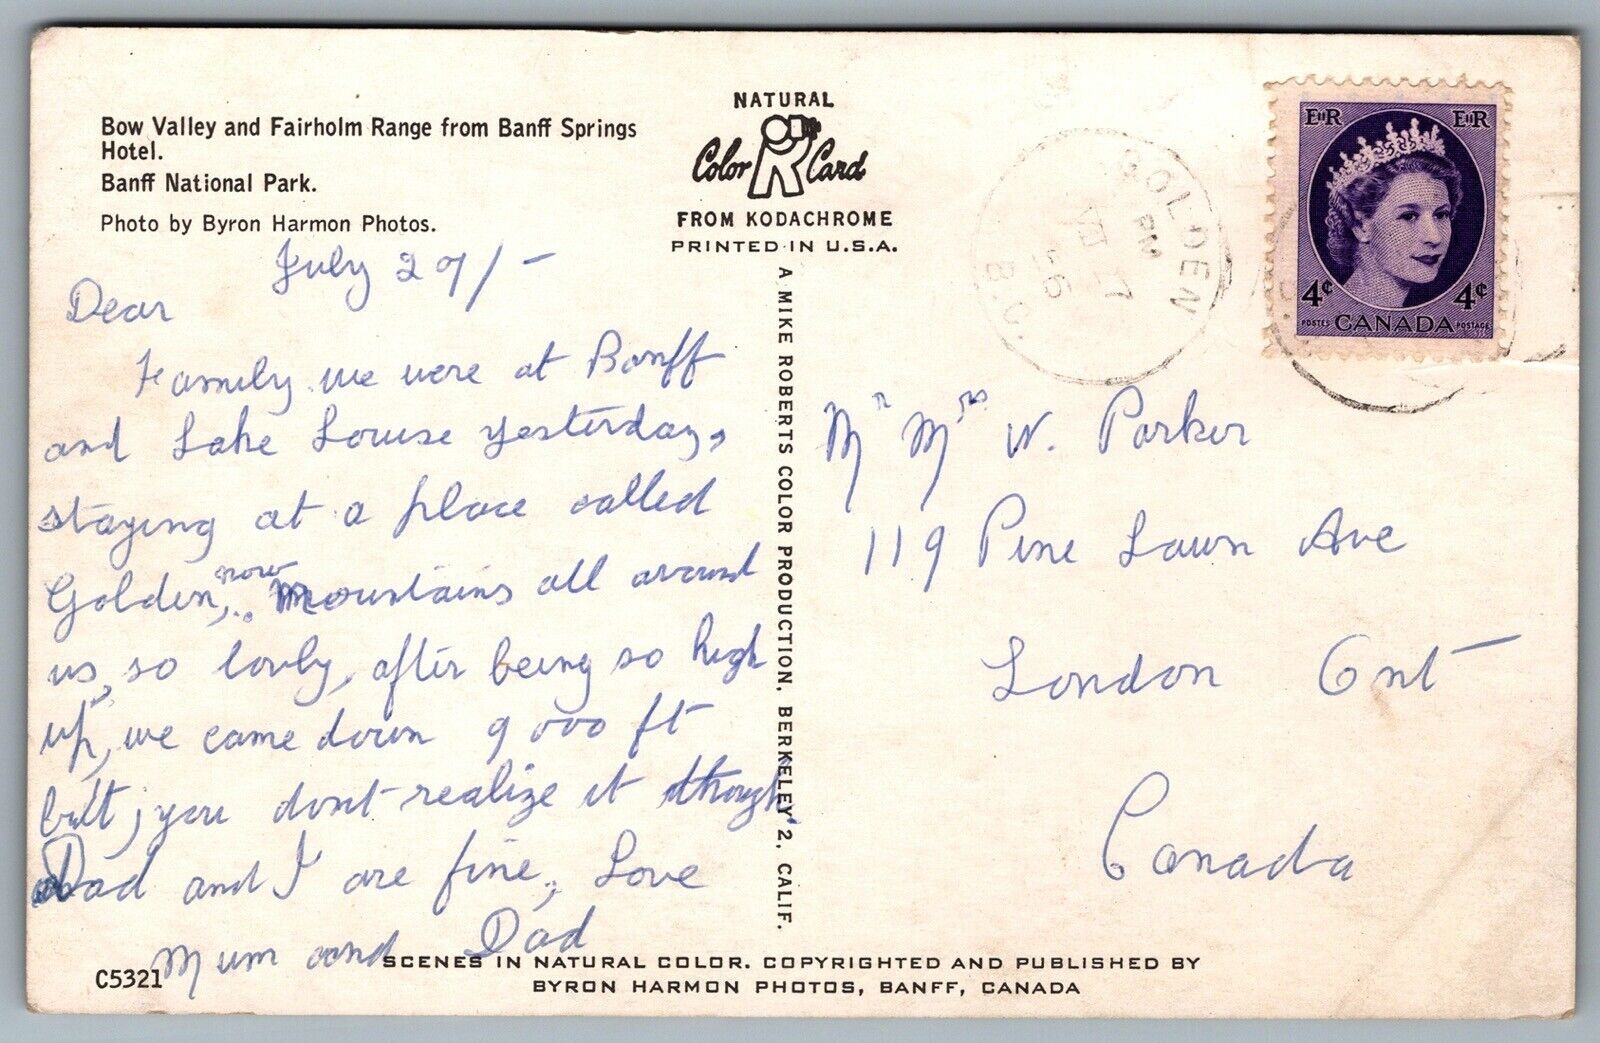 Bow Valley and Fairholm Range from Banff Springs
Hotel.
Banff National Park.
Photo by Byron Harmon Photos.
NATURAL
Color Card
FROM KODACHROME
PRINTED IN U.S.A.
A MIKE ROBERTS COLOR PRODUCTION, BERKELEY 2, CALIF.
July 29/-
Dear
Family we were at Banff
and Lake Louise yesterday,
staying at a place called
Golden, now Mountains all around
us, so lovly, after being so high
up, we came down 9000 ft
but, you dont realize it though.
Dad and I are fine, Love
Mum and Dad
C5321
SCENES IN NATURAL COLOR. COPYRIGHTED AND PUBLISHED BY
BYRON HARMON PHOTOS, BANFF, CANADA
GOLDEN
PM
B.C.
EIIR EIIR
4¢ 4¢
POSTES CANADA POSTAGE
Mr Mrs W. Parker
119 Pine Lawn Ave
London Ont
Canada